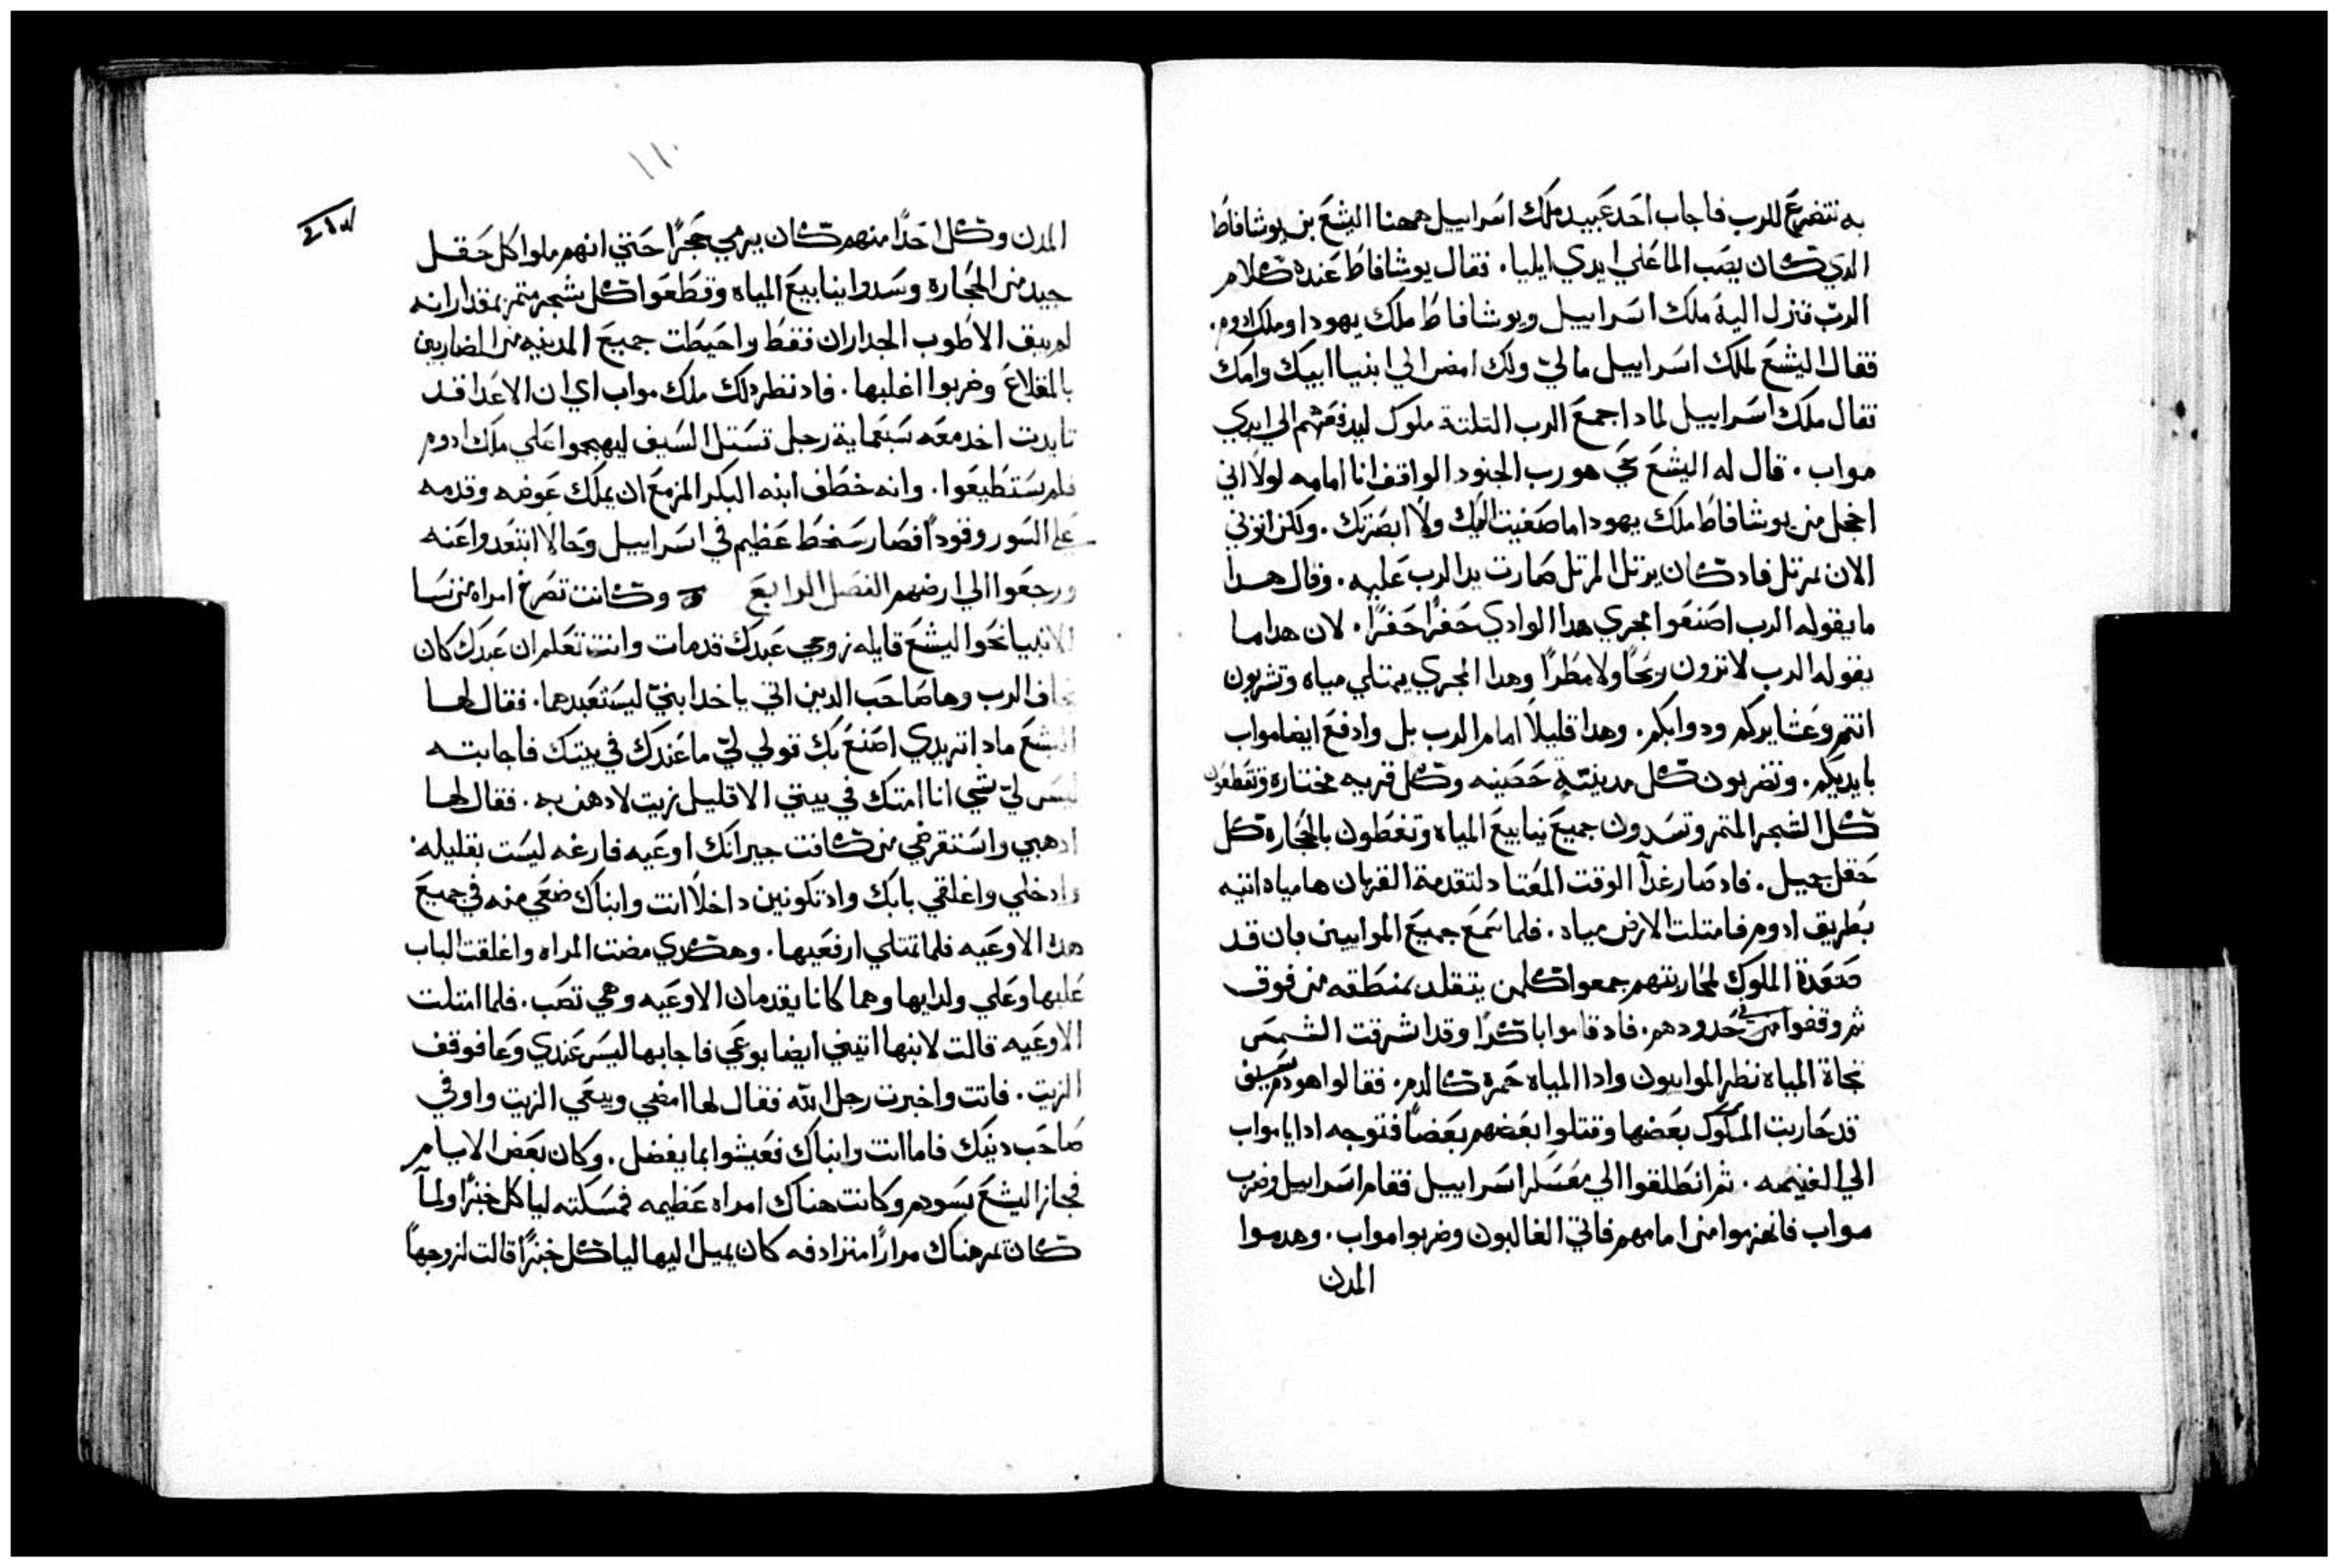 به نتضرع للرب فاجاب احد عبيد ملك اسراييل ههنا اليشع بن يوشافاط
الدي كان يصب الما علي ايدي ايليا. فقال يوشافاط عنده كلام
الرب فنزل اليه ملك اسراييل ويوشافاط ملك يهودا وملك ادوم.
فقال اليشع لملك اسراييل مالي ولك امض الي انبيا ابيك وامك
فقال ملك اسراييل لمادا جمع الرب التلتة ملوك ليدفعهم الي ايدي
مواب. قال له اليشع حي هو رب الجنود الواقف انا امامه لولا اني
اخجل من يوشافاط ملك يهودا ما صغيت اليك ولا ابصرتك. ولكن اتوني
الان بمرتل فاد كان يرتل المرتل صارت يد الرب عليه. وقال هدا
ما يقوله الرب اصنعوا مجري هدا الوادي حفرًا حفرًا. لان هدا ما
يقوله الرب لا ترون ريحًا ولا مطرًا وهدا المجري يمتلي مياه وتشربون
انتم وعشايركم ودوابكم. وهدا قليلًا امام الرب بل وادفع ايضا مواب
بايديكم. وتضربون كل مدينة حصينه وكل قريه مختاره وتقطعون
كل الشجر المتمر وتسدون جميع ينابيع المياه وتغطون بالحجاره كل
حقل جيل. فاد صار غدًا الوقت المعتاد لتقدمة القربان ها مياه اتيه
بطريق ادوم فامتلت الارض مياه. فلما سمع جميع الموابيين بان قد
صعدة الملوك لمحاربتهم جمعوا كلمن يتقلد بمنطقه من فوق
ثم وقفوا في حدودهم. فاد قاموا باكرًا وقد اشرقت الشمس
تجاة المياه نظر الموابيون وادا المياه حمرة كالدم. فقالوا هو دم سيف
قد حاربت الملوك بعضها وقتلوا بعضهم بعضًا فتوجه ادا يا مواب
الي الغنيمه. ثم انطلقوا الي معسكر اسراييل فقام اسراييل وضرب
مواب فانهزموا من امامهم فاتي الغالبون وضربوا مواب. وهدموا
المدن
١١٠
المدن وكل احدًا منهم كان يرمي حجرًا حتي انهم ملوا كل حقل
جيد من الحجاره وسدوا ينابيع المياه وقطعوا كل شجر متمر بمقدار انه
لم يبق الا طوب الجداران فقط واحيطت جميع المدينه من الضاربين
بالمقلاع وضربوا اغلبها. فاد نظر دلك ملك مواب اي ان الاعدا قد
تايدت اخد معه سبعماية رجل تستل السيف ليهجموا علي ملك ادوم
فلم يستطيعوا. وانه خطف ابنه البكر المزمع ان يملك عوضه وقدمه
علي السور وقودًا فصار سخط عظيم في اسراييل وحالًا ابتعدوا عنه
ورجعوا الي ارضهم الفصل الرابع وكانت تصرخ امراه من نسا
الانبيا نحو اليشع قايله زوجي عبدك قد مات وانت تعلم ان عبدك كان
يخاف الرب وها صاحب الدين اتي ياخد ابنيّ ليستعبدهما. فقال لها
اليشع مادا تريدي اصنع بك قولي ليّ ما عندك في بيتك فاجابته
ليس ليّ شي انا امتك في بيتي الا قليل زيت لادهن به. فقال لها
ادهبي واستقرضي من كافت جيرانك اوعيه فارغه ليست بقليله.
وادخلي واغلقي بابك واد تكونين داخلًا انت وابناك ضعي منه في جميع
هده الاوعيه فلما تمتلي ارفعيها. وهكدي مضت المراه واغلقت الباب
عليها وعلي ولديها وهما كانا يقدمان الاوعيه وهي تصب. فلما امتلت
الاوعيه قالت لابنها اتيني ايضا بوعي فاجابها ليس عندي وعا فوقف
الزيت. فاتت واخبرت رجل الله فقال لها امضي وبيعي الزيت واوفي
صاحب دينك فاما انت وابناك فعيشوا بما يفضل. وكان بعض الايام
فجاز اليشع بسودم وكانت هناك امراه عظيمه فمسكته لياكل خبزًا ولما
كان يمر هناك مرارًا مترادفه كان يميل اليها لياكل خبزًا قالت لزوجها